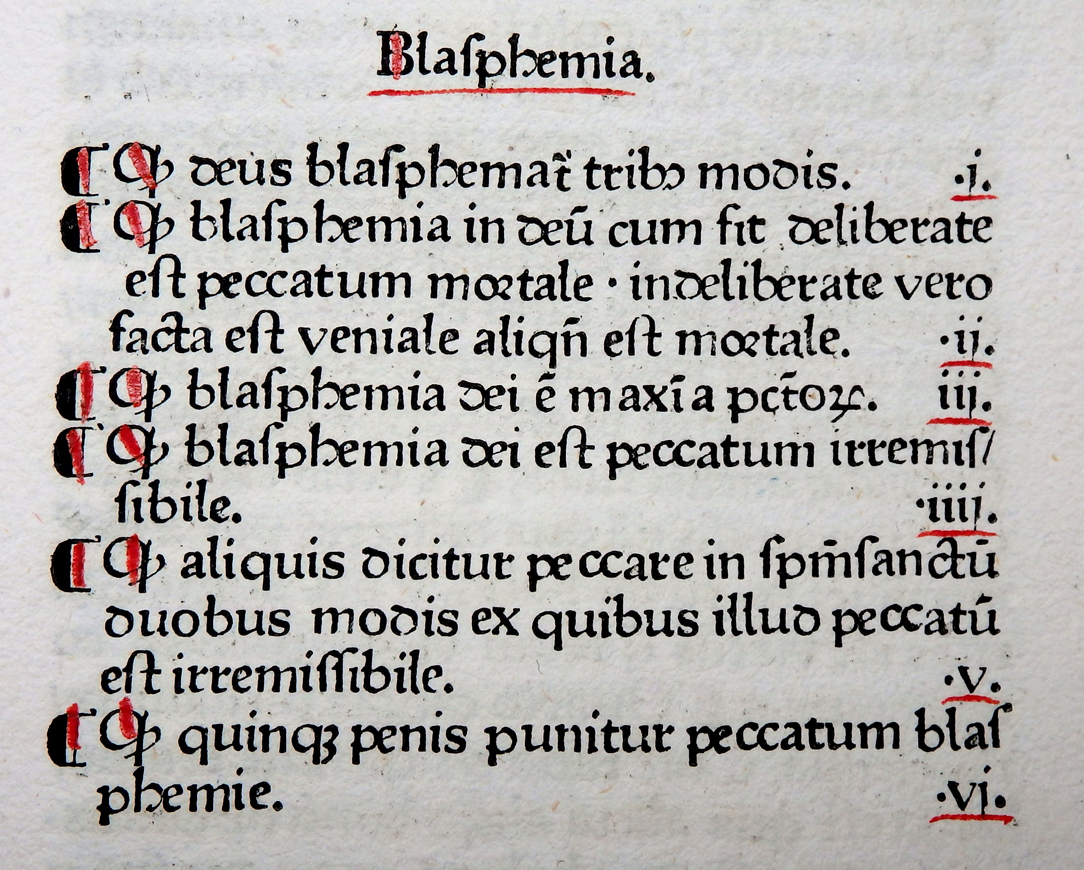 Blaſphemia.
¶ Ꝙ deus blaſphemat᷑ tribꝰ modis. ·j.
¶ Ꝙ blaſphemia in deū cum fit deliberate
eſt peccatum moꝛtale · indeliberate vero
facta eſt veniale aliqn̄ eſt moꝛtale. ·ij.
¶ Ꝙ blaſphemia dei ē maxīa pctōꝝ. iij.
¶ Ꝙ blaſphemia dei eſt peccatum irremiſ/
ſibile. ·iiij.
¶ Ꝙ aliquis dicitur peccare in ſpm̄ſanctū
duobus modis ex quibus illud peccatū
eſt irremiſſibile. ·v.
¶ Ꝙ quinqꝫ penis punitur peccatum blaſ
phemie. ·vj.